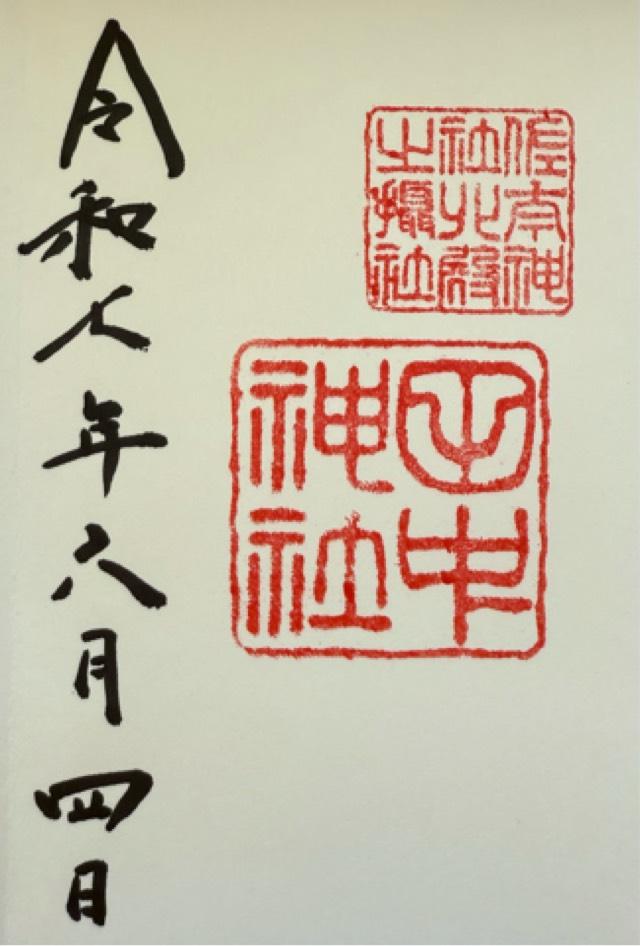 佐太神
社北殿
之攝社
田中
神社
令和七年六月四日